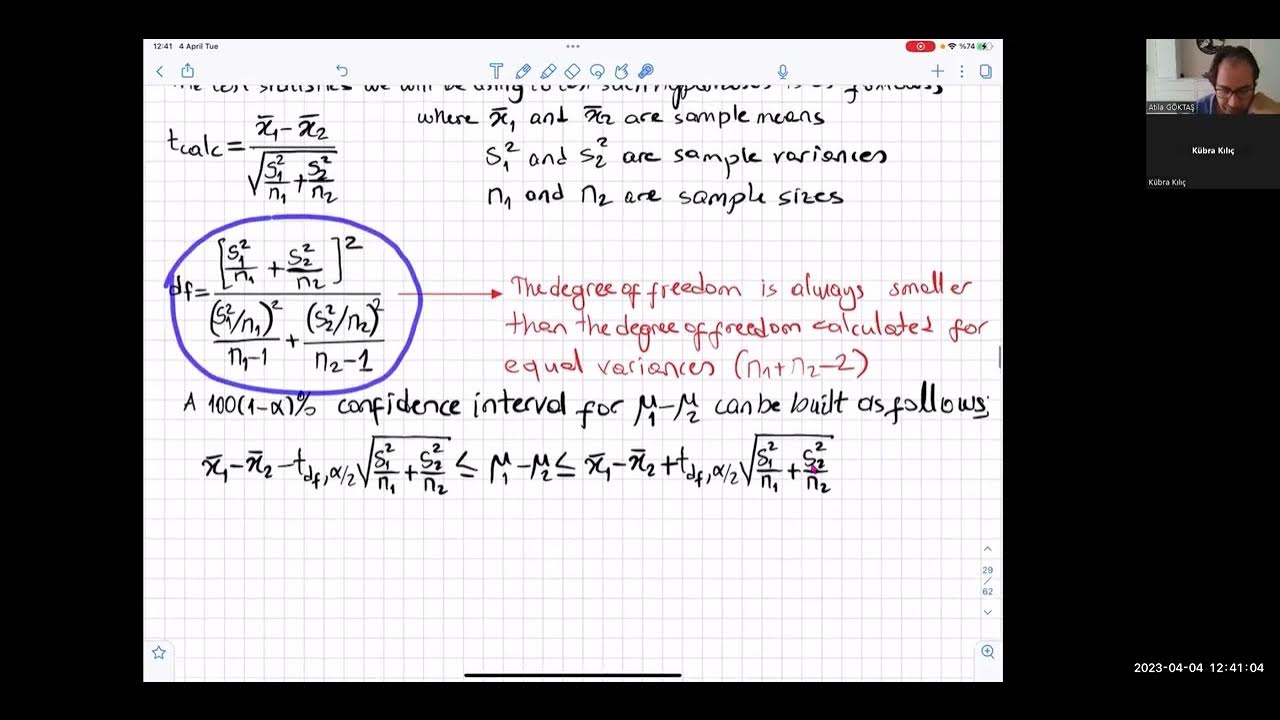 12:41 4 April Tue
%74
where x̄₁ and x̄₂ are sample means
t_calc = (x̄₁ - x̄₂) / √(S₁²/n₁ + S₂²/n₂)
S₁² and S₂² are sample variances
n₁ and n₂ are sample sizes
df = [S₁²/n₁ + S₂²/n₂]² / ((S₁²/n₁)²/(n₁-1) + (S₂²/n₂)²/(n₂-1))
The degree of freedom is always smaller
than the degree of freedom calculated for
equal variances (n₁+n₂-2)
A 100(1-α)% confidence interval for μ₁-μ₂ can be built as follows;
x̄₁ - x̄₂ - t_df,α/2 √(S₁²/n₁ + S₂²/n₂) ≤ μ₁ - μ₂ ≤ x̄₁ - x̄₂ + t_df,α/2 √(S₁²/n₁ + S₂²/n₂)
29
/
62
Atila GÖKTAŞ
Kübra Kılıç
Kübra Kılıç
2023-04-04 12:41:04